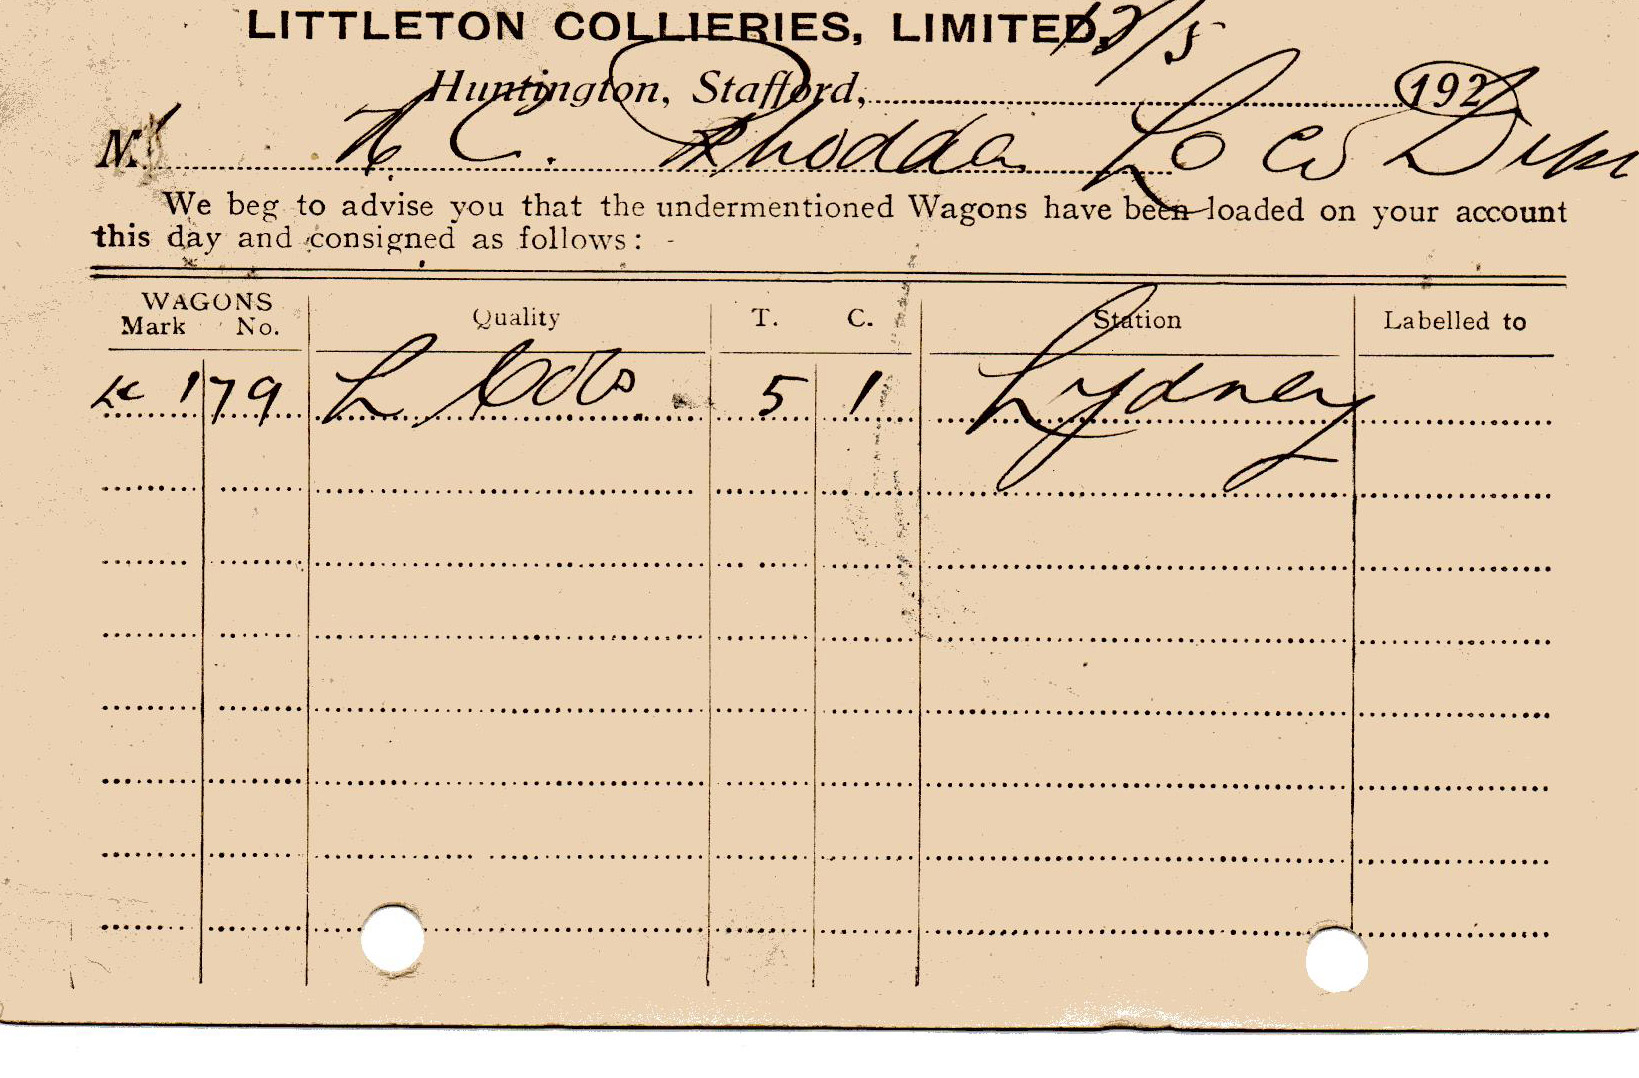 LITTLETON COLLIERIES, LIMITED,
Huntington, Stafford, 192
M C. Rhodda Loco Dept
We beg to advise you that the undermentioned Wagons have been loaded on your account
this day and consigned as follows: -
WAGONS Quality T. C. Station Labelled to
Mark No.
179 L Cobs 5 1 Lydney